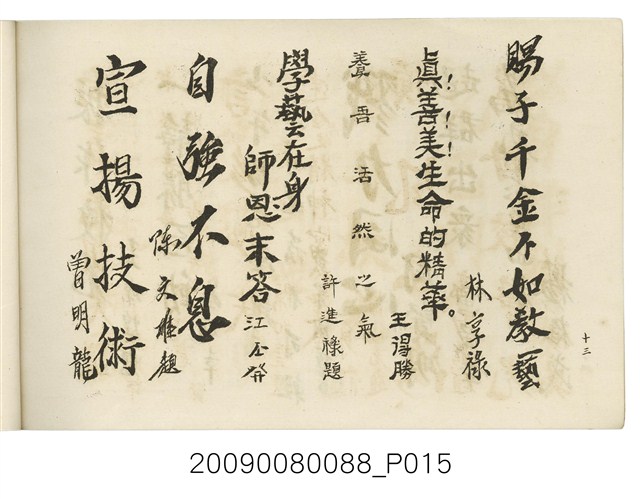 賜子千金不如教藝
林享祿
真！善！美！生命的精華。
王得勝
養吾活然之氣
許進祿題
學藝在身
師恩未答
江
自強不息
陈文雄題
宣揚技術
曾明龍
十三
20090080088_P015